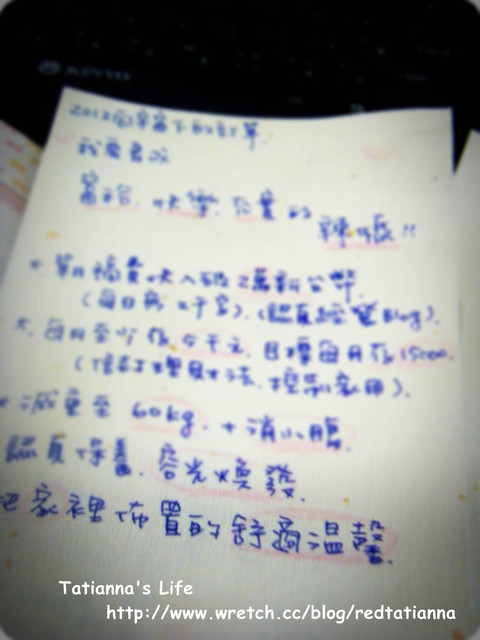 2012向宇宙下的訂單
我要喜悅
富裕.快樂.充實的
辣媽!!
*.單月稿費收入破2萬新台幣.
(每日兩.3千字).(認真經營Blog).
*.每月至少存5千元.目標每月存15000.
(信託理財方法.控制家用).
*減重至60kg.+消小腹.
認真保養.容光煥發.
把家裡佈置的舒適溫馨.
Tatianna's Life
http://www.wretch.cc/blog/redtatianna